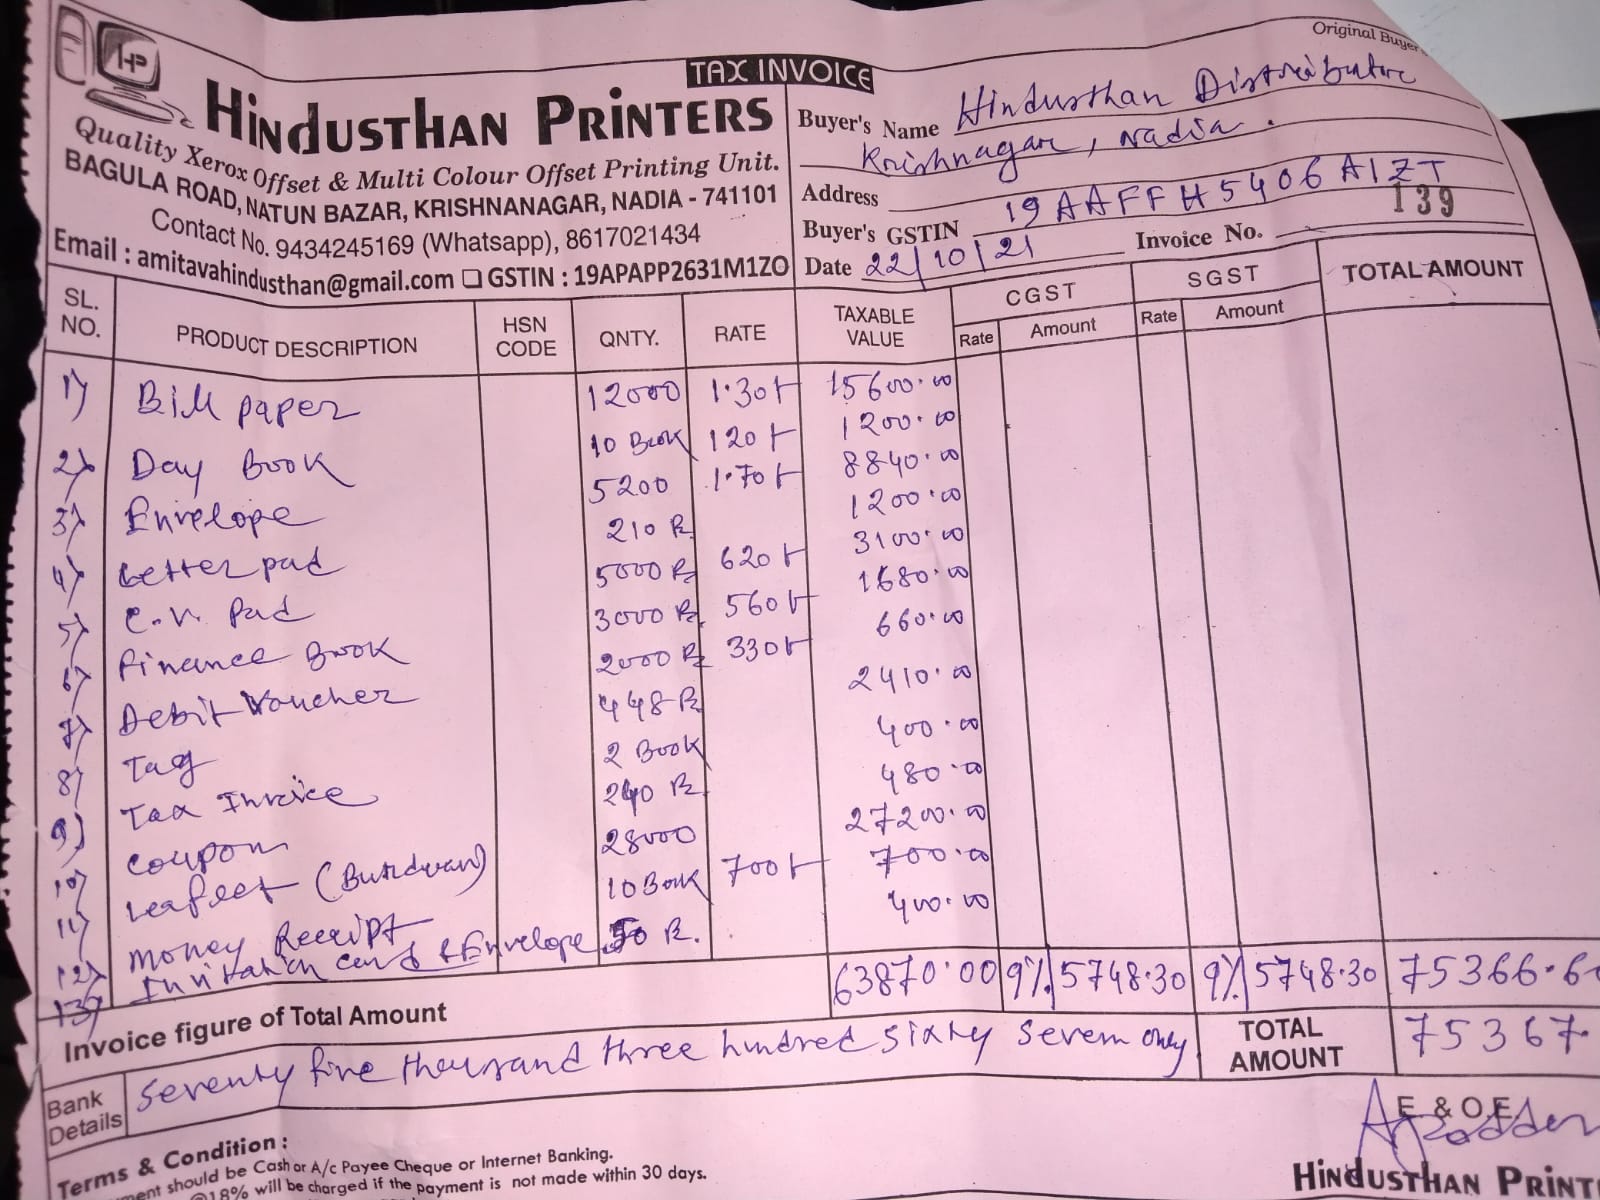 Original Buyer
TAX INVOICE
HP
Hindusthan Printers
Quality Xerox Offset & Multi Colour Offset Printing Unit.
BAGULA ROAD, NATUN BAZAR, KRISHNANAGAR, NADIA - 741101
Contact No. 9434245169 (Whatsapp), 8617021434
Email : amitavahindusthan@gmail.com ❑ GSTIN : 19APAPP2631M1ZO
Buyer's Name Hindusthan Distributor
Krishnagar, Nadia.
Address
Buyer's GSTIN 19AAFFH5406A1ZT
Date 22/10/21 Invoice No. 139
SL. NO. PRODUCT DESCRIPTION HSN CODE QNTY. RATE TAXABLE VALUE CGST Rate Amount SGST Rate Amount TOTAL AMOUNT
1) Bill paper 12000 1.30 15600.00
2) Day Book 10 Book 120 1200.00
3) Envelope 5200 1.70 8840.00
4) Letter pad 210 1200.00
5) C.N. Pad 5000 620 3100.00
6) Finance Book 3000 560 1680.00
7) Debit Voucher 2000 330 660.00
8) Tag 448 2410.00
9) Tax Invoice 2 Book 400.00
10) Coupon 240 480.00
11) Leafleet (Burdwan) 28000 27200.00
12) Money Receipt 10 Book 700 700.00
13) Invitation card & Envelope 50 400.00
63870.00 9% 5748.30 9% 5748.30 75366.6
Invoice figure of Total Amount
Seventy five thousand three hundred sixty seven only
TOTAL AMOUNT 75367
Bank Details
E & O E
Terms & Condition :
ment should be Cash or A/c Payee Cheque or Internet Banking.
@18% will be charged if the payment is not made within 30 days.
Hindusthan Print